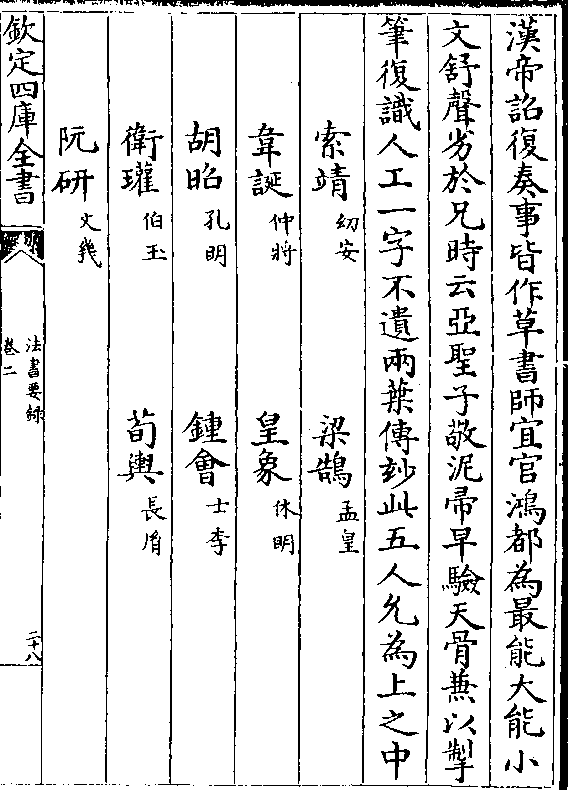 漢帝詔復奏事皆作草書師宜官鴻都為最能大能小
文舒聲劣於兄時云亞聖子敬泥帚早驗天骨兼以掣
筆復識人工一字不遺兩葉傳妙此五人允為上之中
索靖 幼安 梁鵠 孟皇
韋誕 仲將 皇象 休明
胡昭 孔明 鍾會 士季
衛瓘 伯玉 荀輿 長胤
阮研 文幾
欽定四庫全書 法書要録 卷二 二十八